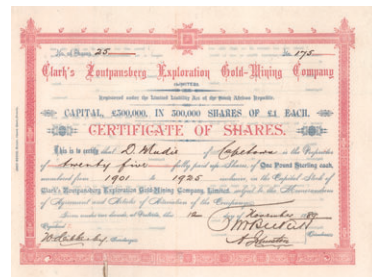 No. of Shares 25 No. 175
Clark's Zoutpansberg Exploration Gold-Mining Company
LIMITED.
Registered under the Limited Liability Act of the South African Republic.
CAPITAL, £500,000, IN 500,000 SHARES OF £1 EACH.
CERTIFICATE OF SHARES.
This is to certify that D. Mudie of Capetown is the Proprietor
of twenty five fully paid up Shares of One Pound Sterling each,
numbered from 1901 to 1925 inclusive, in the Capital Stock of
Clark's Zoutpansberg Exploration Gold-Mining Company, Limited, subject to the Memorandum
of Agreement and Articles of Association of the Company.
Given under our hands, at this day of November